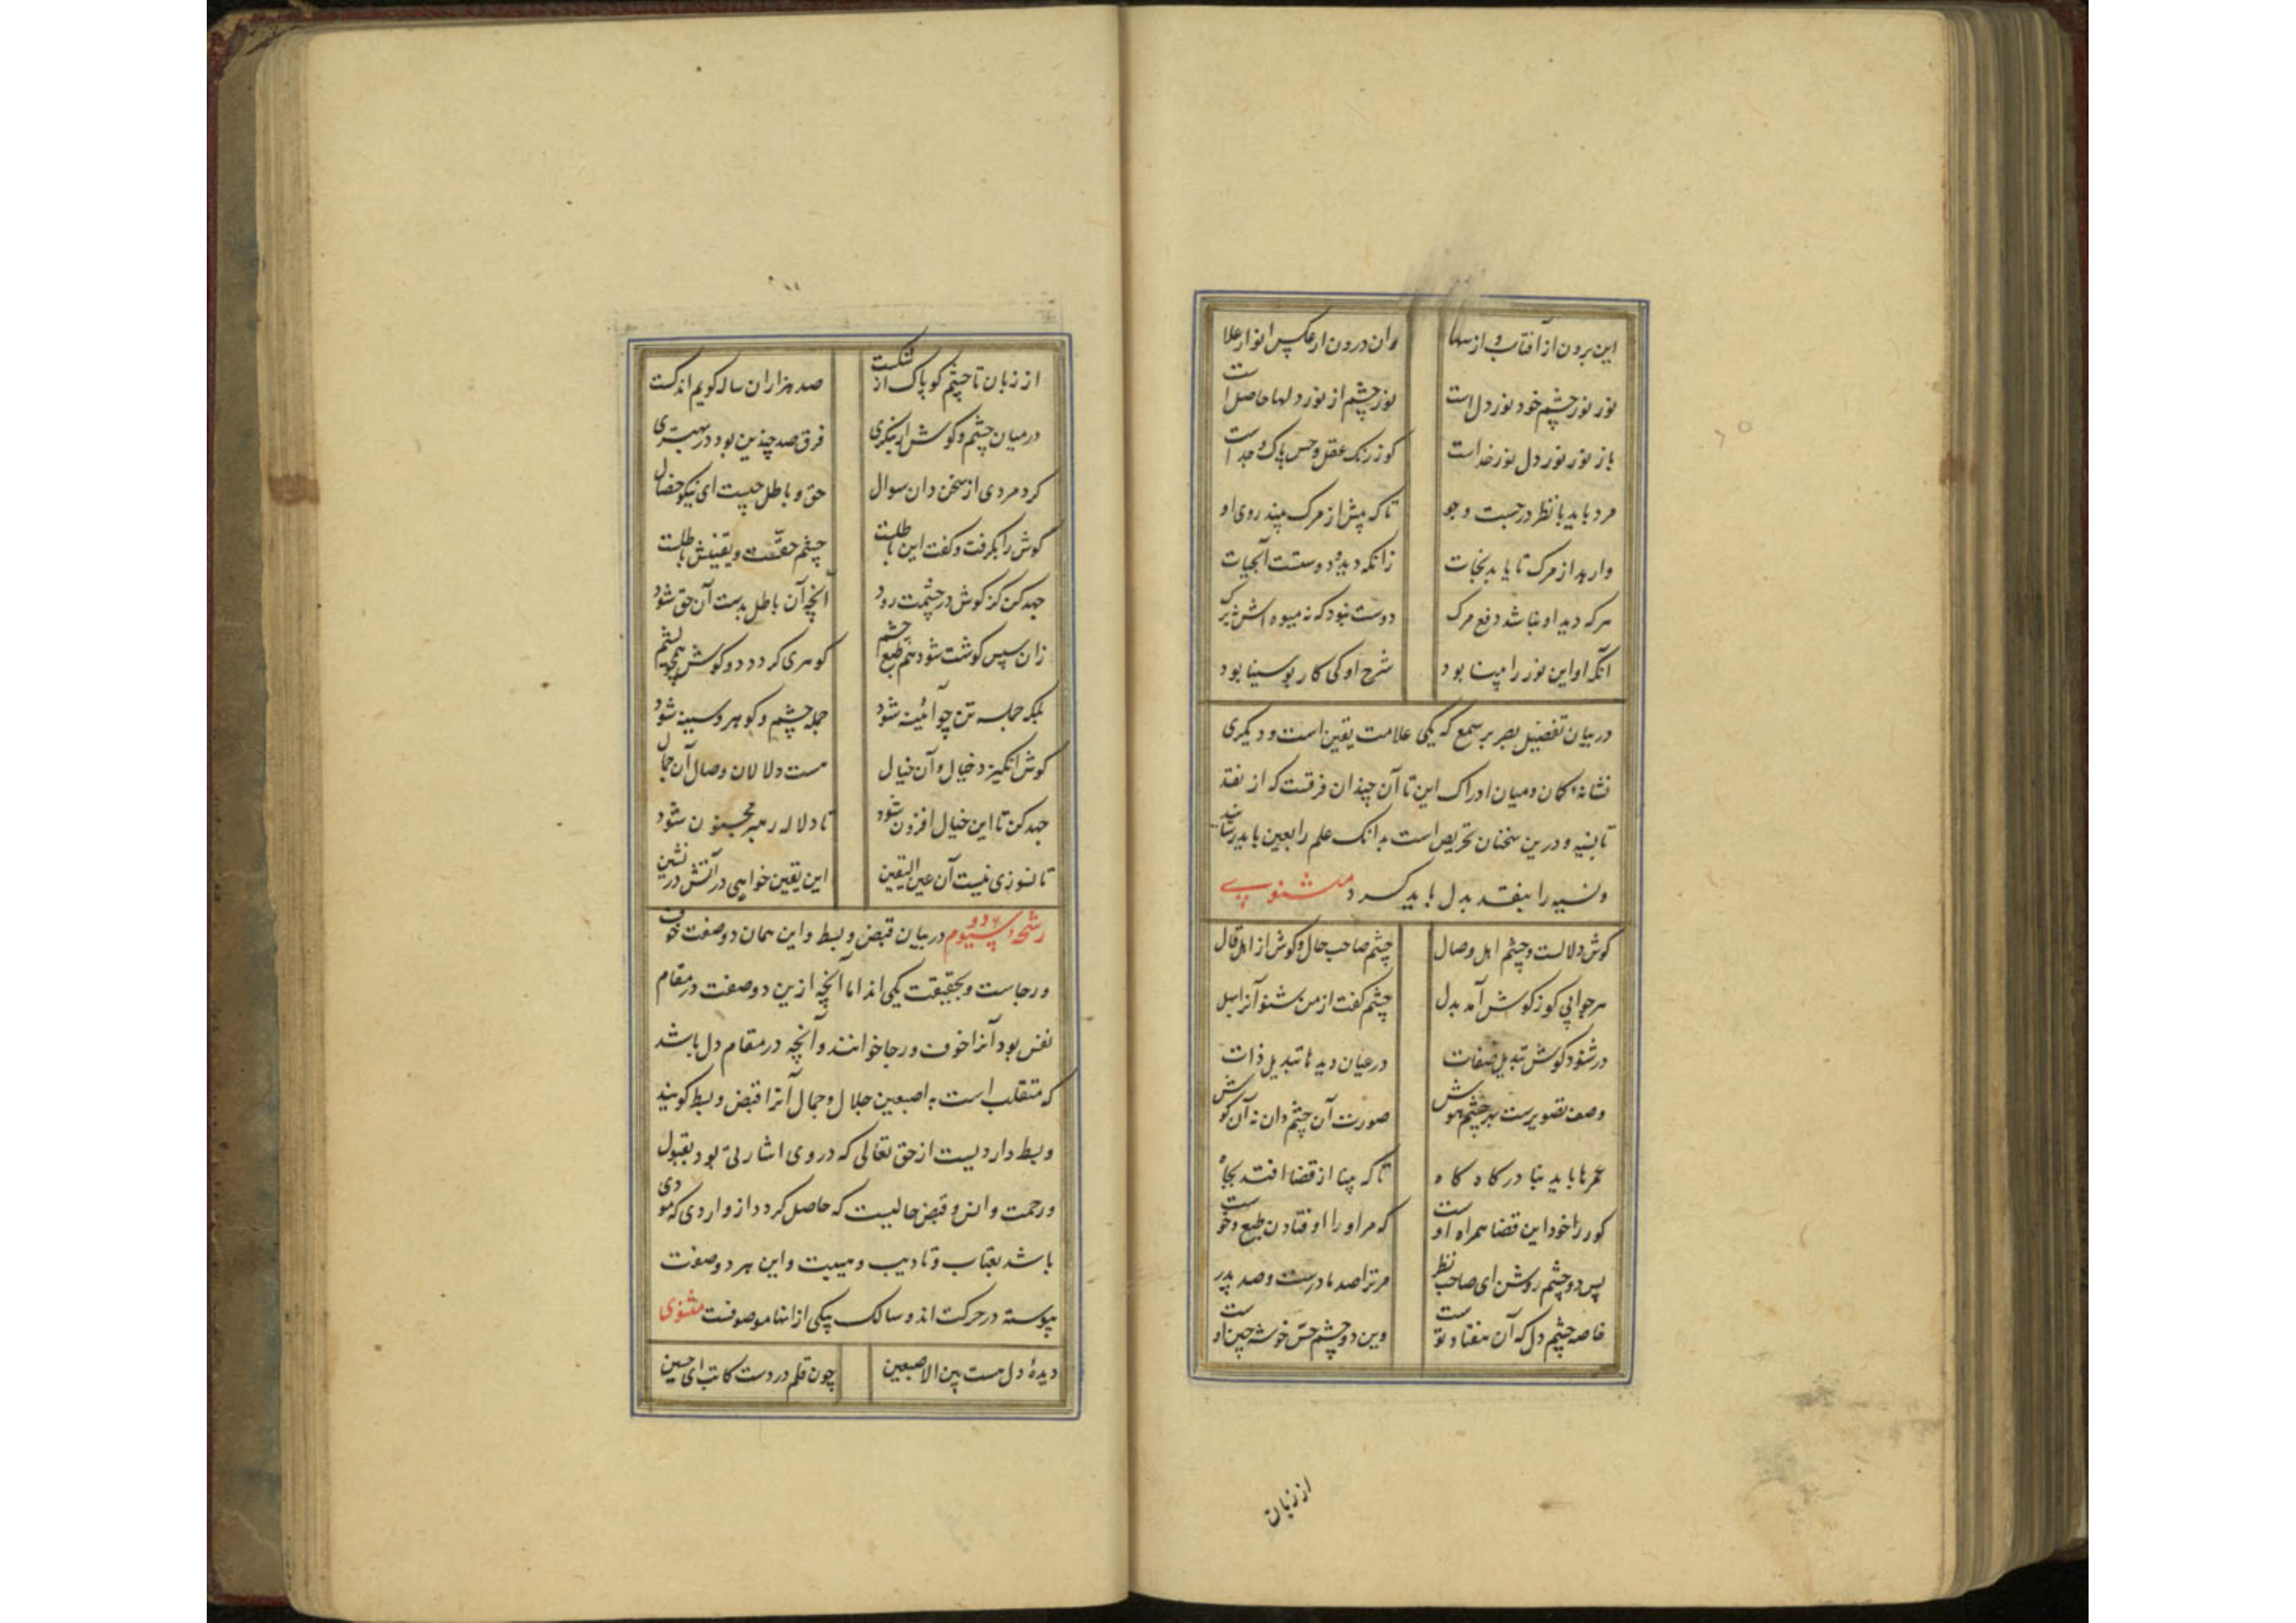 این برون از آفتاب و از سها وان درون از عکس انوار علا
نور نور چشم خود نور دل است نور چشم از نور دلها حاصل است
باز نور نور دل نور خداست کو ز رنک عقل و حس پاک و جداست
مرد باید با نظر در جست و جو تا که پیش از مرک بیند روی او
وارهد از مرک تا یابد نجات زانکه دیده دوستست آبحیات
هرکه دید او نباشد دفع مرک دوست نبود که نه میوه اش نه برک
آنکه او این نور را بینا بود شرح او کی کار بوسینا بود
در بیان تفضیل بصر بر سمع که یکی علامت یقین است و دیکری
نشانهٔ کمان و میان ادراک این تا آن چندان فرقست که از نقد
تا بنسیه و درین سخنان تحریص است بدانک علم را بعین باید رسانید
و نسیه را بنقد بدل باید کرد مثنوی
کوش دلالست و چشم اهل وصال چشم صاحب حال و کوش از اهل قال
هر جوابی کو ز کوش آمد بدل چشم کفت از من شنو آنرا بهل
در شنود کوش تبدیل صفات در عیان دیدها تبدیل ذات
وصف تصویرست بهر چشم هوش صورت آن چشم دان نه آن کوش
عمرها باید بنا در کاه کاه تا که بینا از قضا افتد بجاه
کور را خود این قضا همراه اوست که مر او را اوفتادن طبع و خوست
پس دو چشم روشن ای صاحب نظر مر ترا صد مادرست و صد پدر
خاصه چشم دل که آن هفتاد توست وین دو چشم حس خوشه چین اوست
از زبان
از زبان تا چشم کو پاک از شکست صد هزاران ساله کویم اندکست
در میان چشم و کوش ار بنکری فرق صد چندین بود در بهتری
کرد مردی از سخن دان سوال حق و باطل چیست ای نیکو خصال
کوش را بکرفت و کفت این باطلست چشم حقست و یقینش باطلست
جهد کن کز کوش در چشمت رود آنچه آن باطل بدست آن حق شود
زان سپس کوشت شود هم طبع چشم کوهری کردد دو کوش همچو یشم
بلکه جمله تن چو آئینه شود جمله چشم و کوهر و سینه شود
کوش انکیزد خیال و آن خیال هست دلالان وصال آن جمال
جهد کن تا این خیال افزون شود تا دلاله رهبر مجنون شود
تا نسوزی نیست آن عین الیقین این یقین خواهی در آتش در نشین
رشحه دو سیوم در بیان قبض و بسط و این همان دو صفت خوف
و رجاست و بحقیقت یکی اند اما آنچه ازین دو صفت در مقام
نفس بود آنرا خوف و رجا خوانند و آنچه در مقام دل باشد
که متقلب است به اصبعین جلال و جمال آنرا قبض و بسط کویند
و بسط واردیست از حق تعالی که در وی اشارتی بود بقبول
و رحمت و انس و قبض حالیست که حاصل کردد از واردی که مودی
باشد بعتاب و تادیب و هیبت و این هر دو صفت
پیوسته در حرکت اند و سالک بیکی از اینها موصوفست مثنوی
دیدهٔ دل هست بین الاصبعین چون قلم در دست کاتب ای حسین